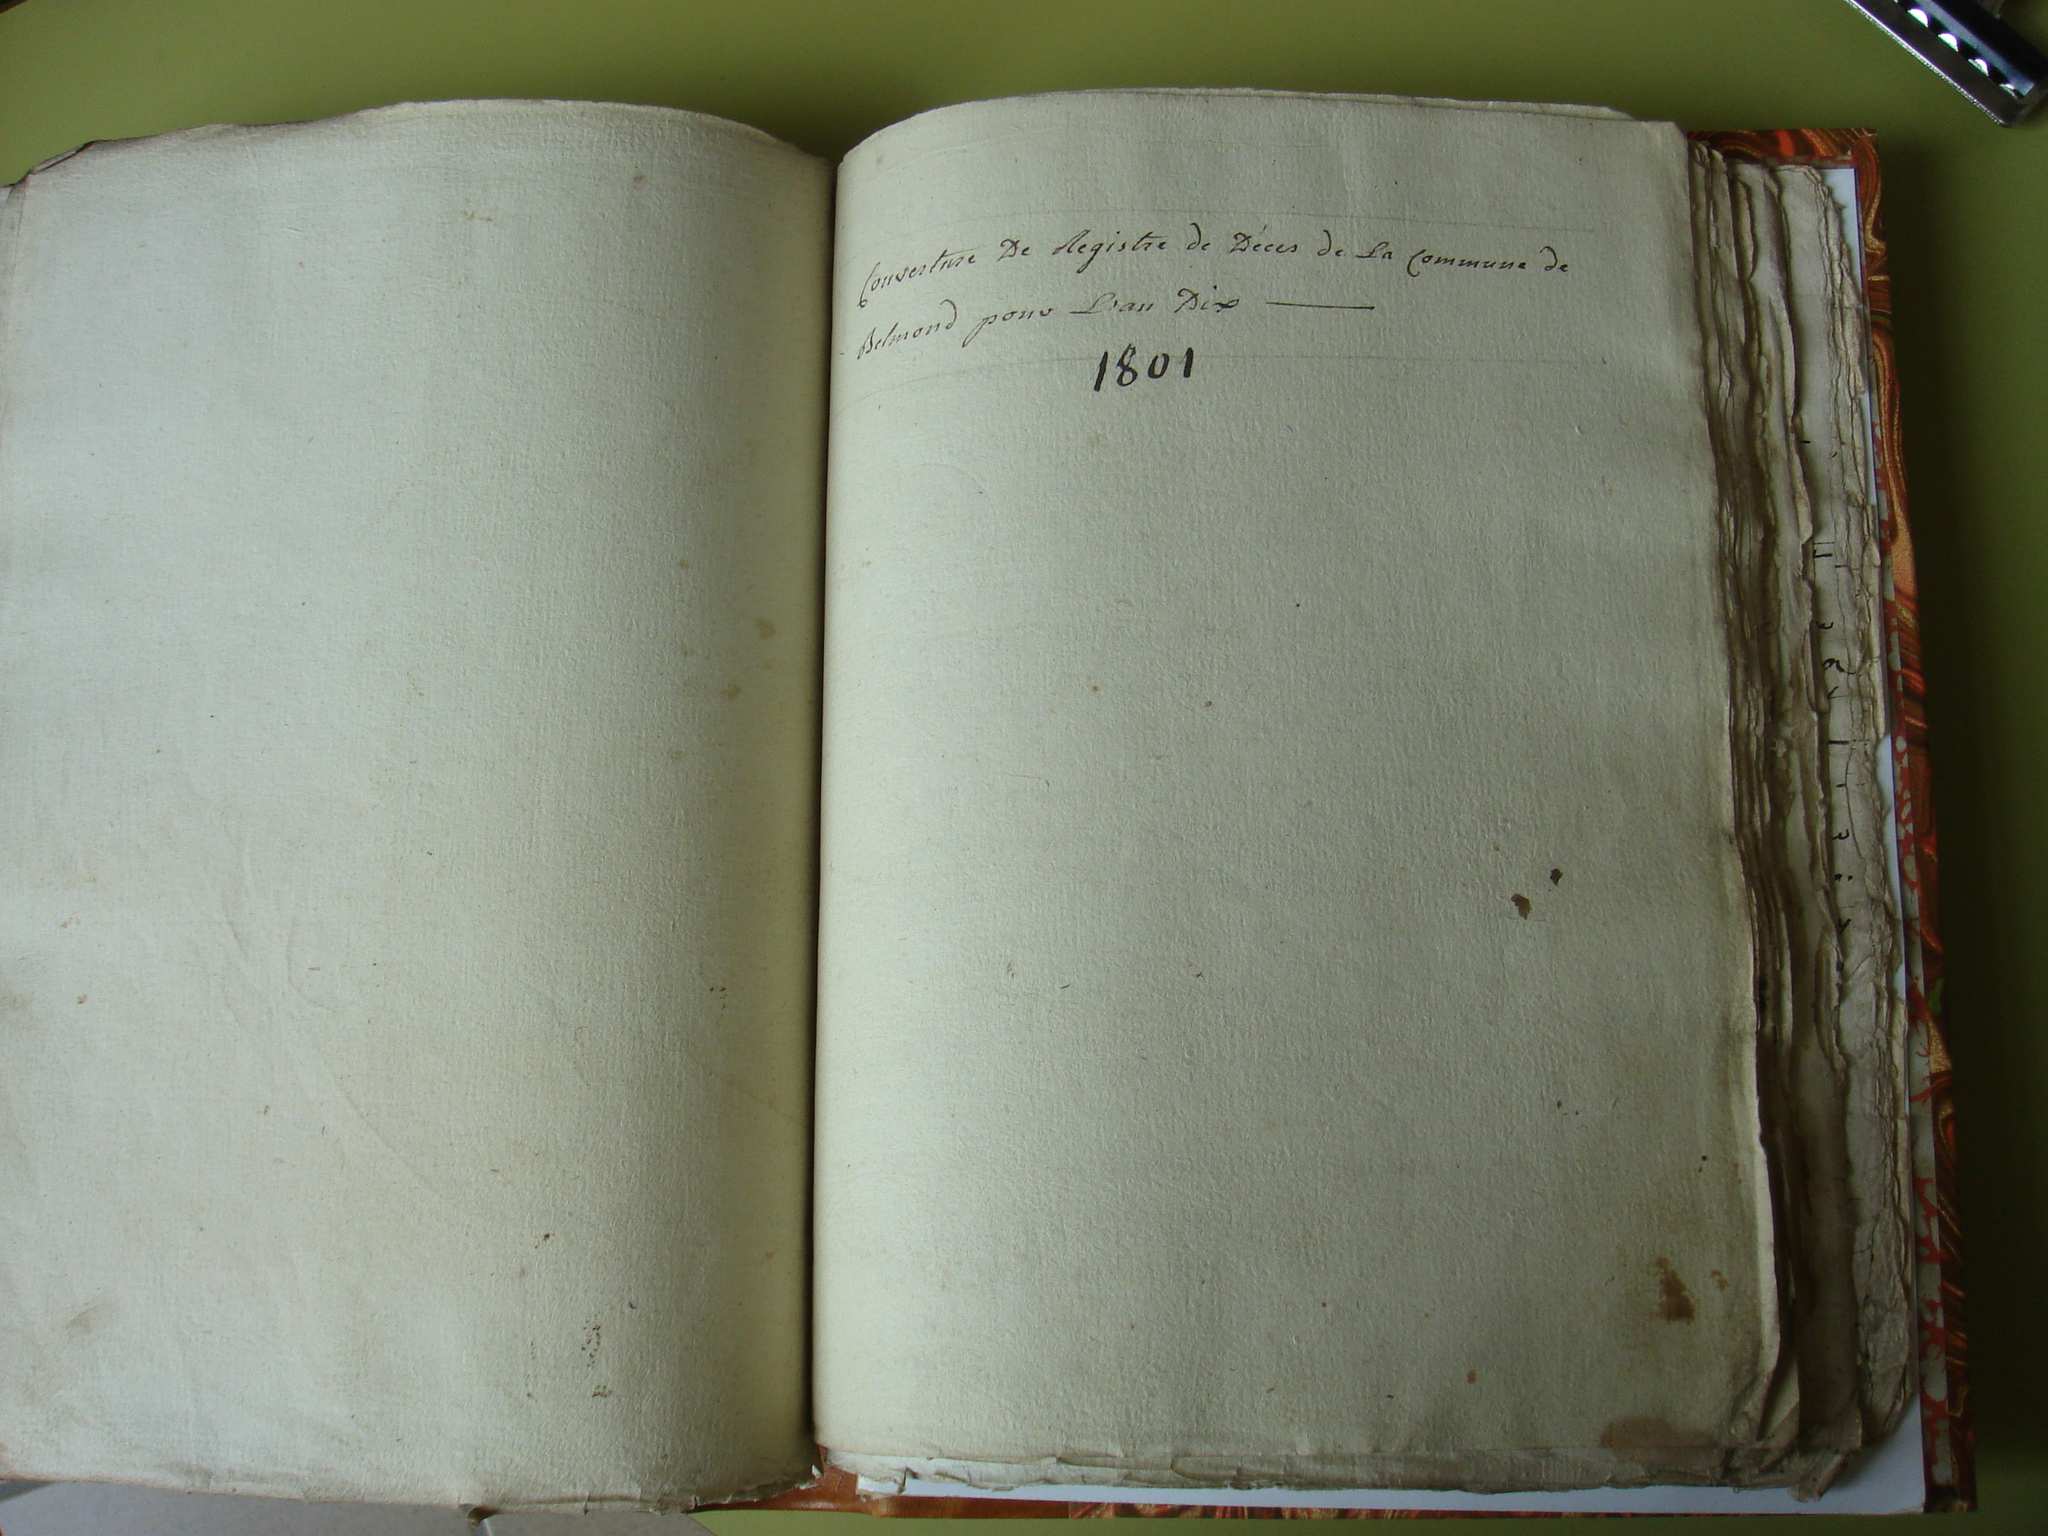 Couverture De Registre de Déces de La Commune de
Belmond pour L'an Dix
1801